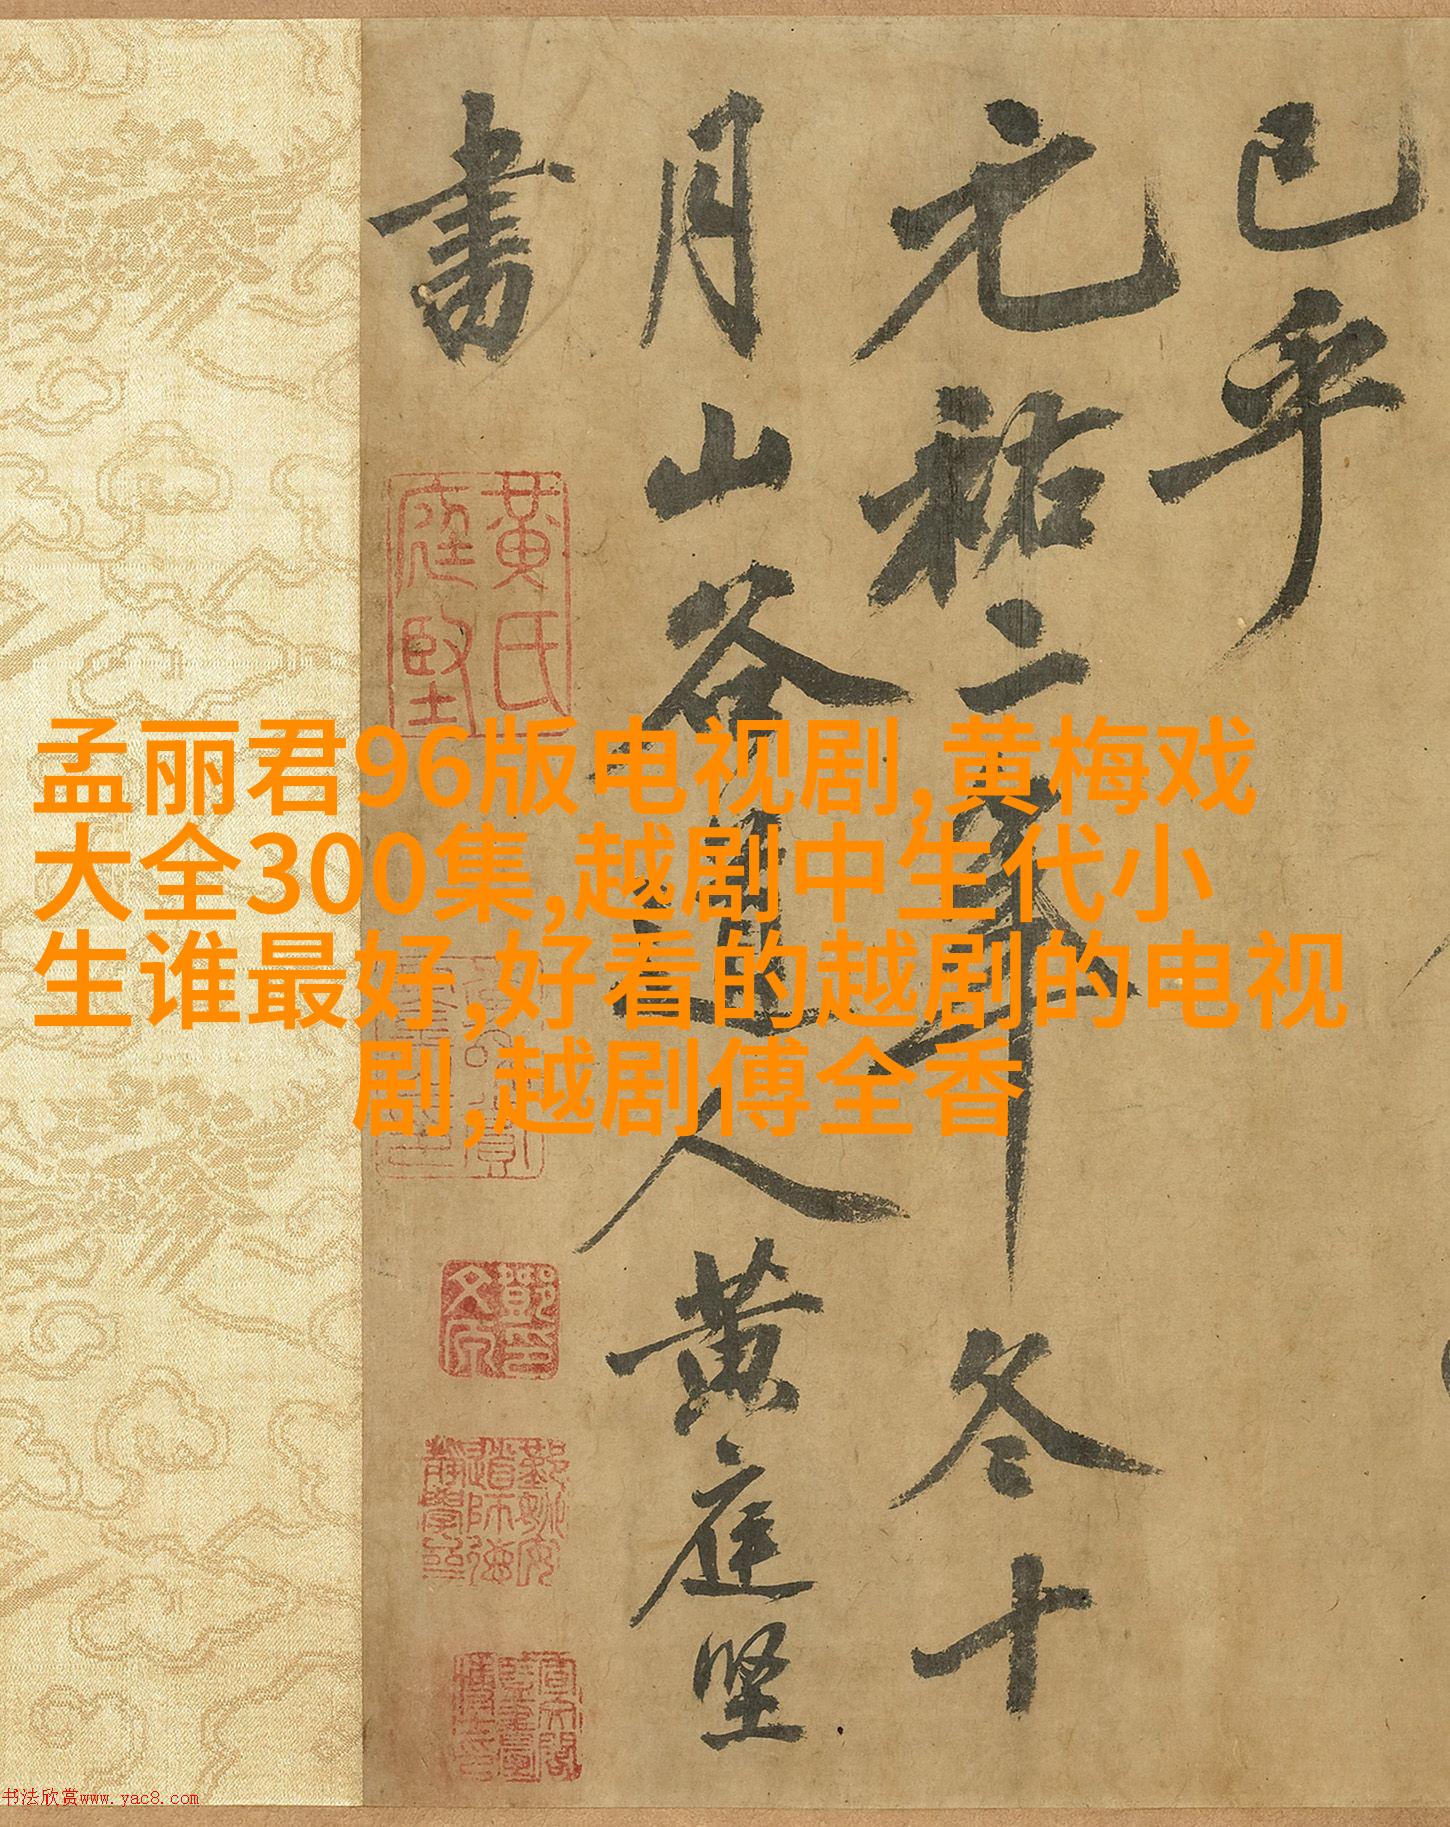 已乎
元祐二年冬十
月山谷道人黄庭堅
書
黄氏
庭堅
孟丽君96版电视剧,黄梅戏
大全300集,越剧中生代小
生谁最好,好看的越剧的电视
剧,越剧傅全香
书法欣赏www.yac8.com